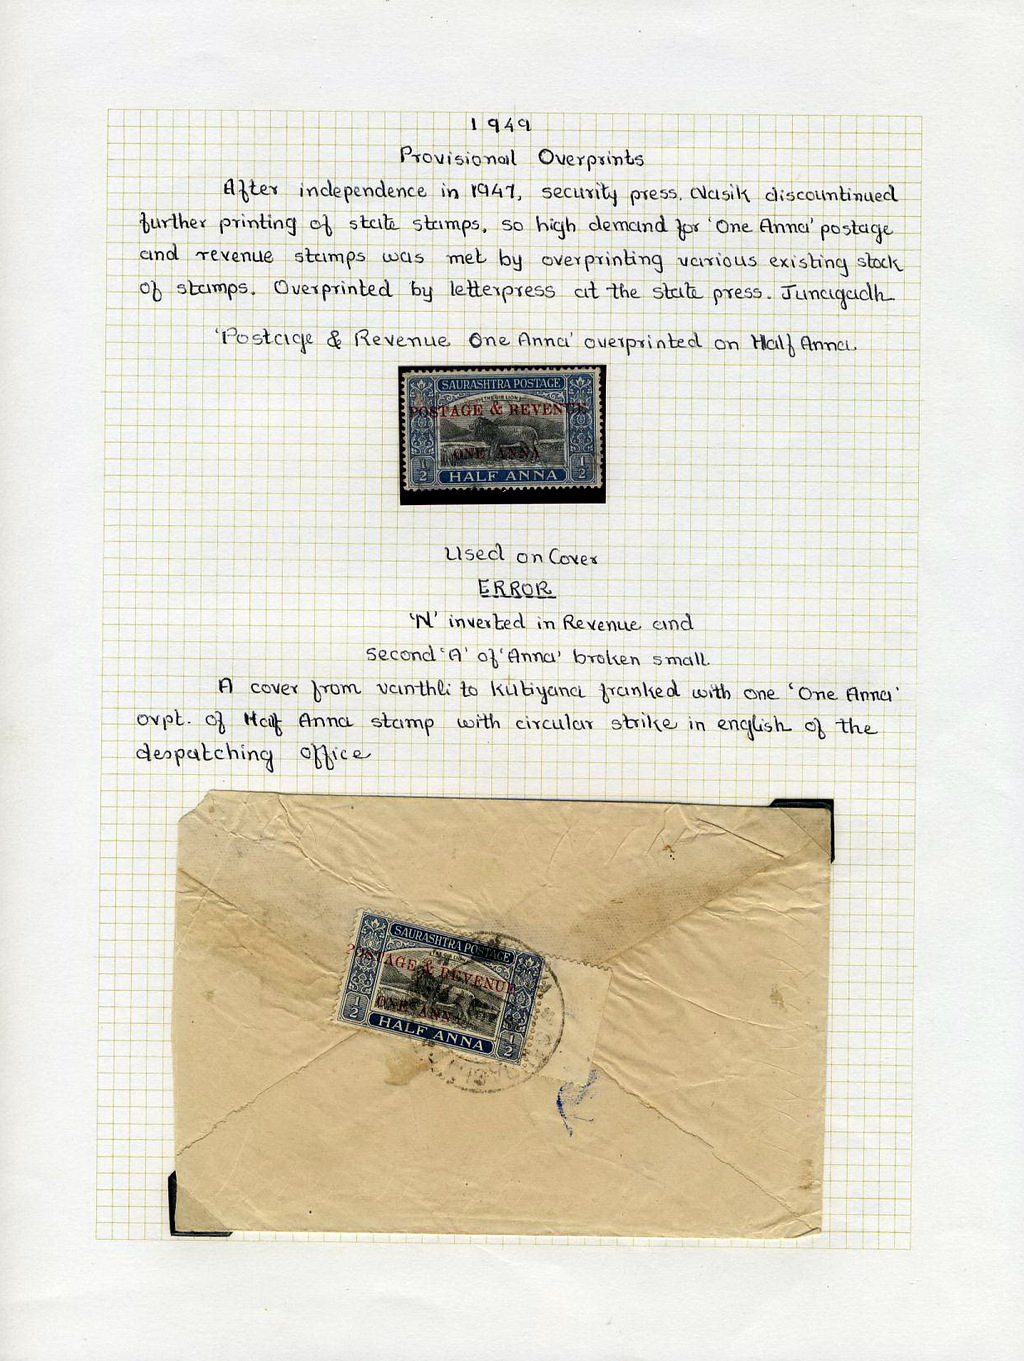 1949
Provisional Overprints
After independence in 1947, security press. Nasik discountinued
further printing of state stamps, so high demand for 'One Anna' postage
and revenue stamps was met by overprinting various existing stock
of stamps. Overprinted by letterpress at the state press. Junagadh
'Postage & Revenue One Anna' overprinted on Half Anna.
SAURASHTRA POSTAGE
THE GIR LION
POSTAGE & REVENUE
ONE ANNA
1/2 HALF ANNA 1/2
Used on Cover
ERROR
'N' inverted in Revenue and
Second 'A' of 'Anna' broken small.
A cover from vanthli to kutiyana franked with one 'One Anna'
ovpt. of Half Anna stamp with circular strike in english of the
despatching office
SAURASHTRA POSTAGE
POSTAGE & REVENUE
ONE ANNA
1/2 HALF ANNA 1/2